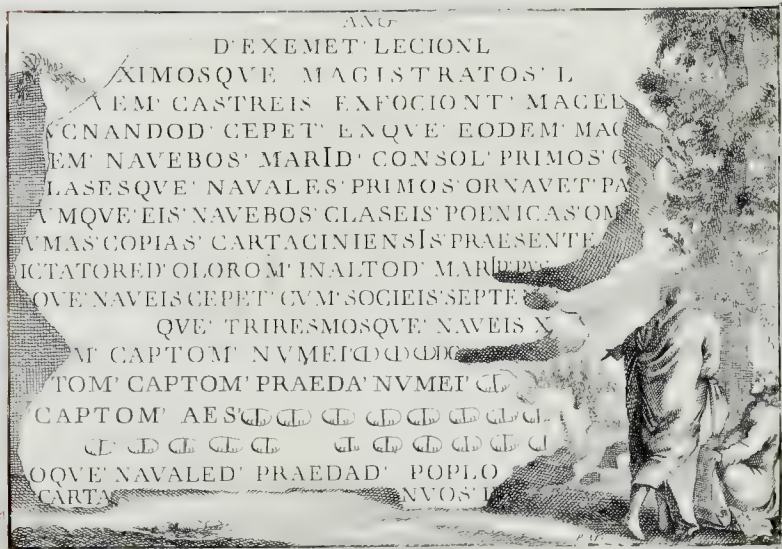 D'EXEMET'LECIONL
XIMOSQVE MAGISTRATOS'L
VEM'CASTREIS EXFOCIONT'MACEL
VCNANDOD'CEPET'ENQVE'EODEM'MAC
EM'NAVEBOS'MARID'CONSOL'PRIMOS'C
LASESQVE'NAVALES'PRIMOS'ORNAVET'PA
VMQVE'EIS'NAVEBOS'CLASEIS'POENICAS'OM
VMAS'COPIAS'CARTACINIENSIS'PRAESENTE
ICTATORED'OLOROM'INALTOD'MARID'PV
QVE'NAVEIS CEPET'CVM'SOCIEIS'SEPTE
QVE'TRIRESMOSQVE'NAVEIS X
M'CAPTOM'NVMEI
TOM'CAPTOM'PRAEDA'NVMEI'
CAPTOM'AES
OQVE'NAVALED'PRAEDAD'POPLO
CARTA NVOS'